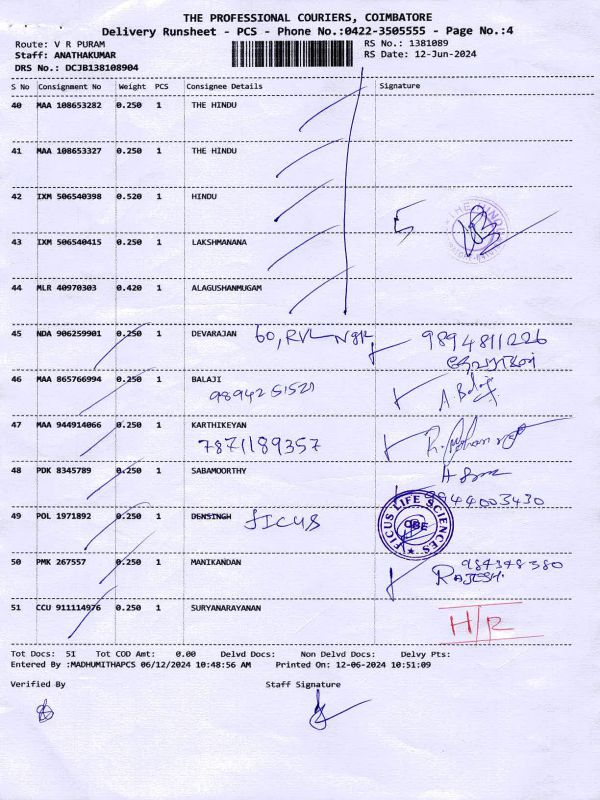 THE PROFESSIONAL COURIERS, COIMBATORE
Delivery Runsheet - PCS - Phone No.:0422-3505555 - Page No.:4
Route: V R PURAM RS No.: 1381089
Staff: ANATHAKUMAR RS Date: 12-Jun-2024
DRS No.: DCJB138108904
S No Consignment No Weight PCS Consignee Details Signature
40 MAA 108653282 0.250 1 THE HINDU
41 MAA 108653327 0.250 1 THE HINDU
42 IXM 506540398 0.520 1 HINDU
43 IXM 506540415 0.250 1 LAKSHMANANA
44 MLR 40970303 0.420 1 ALAGUSHANMUGAM
45 NDA 906259901 0.250 1 DEVARAJAN 60, RVL NGR 9894811226
46 MAA 865766994 0.250 1 BALAJI A. Balaji
9894251521
47 MAA 944914066 0.250 1 KARTHIKEYAN
7871189357
48 PDK 8345789 0.250 1 SABAMOORTHY
9944003430
49 POL 1971892 0.250 1 DENSINGH FICUS
FICUS LIFE SCIENCES
CBE
50 PMK 267557 0.250 1 MANIKANDAN
RAJESH.
51 CCU 911114976 0.250 1 SURYANARAYANAN H/R
Tot Docs: 51 Tot COD Amt: 0.00 Delvd Docs: Non Delvd Docs: Delvy Pts:
Entered By :MADHUMITHAPCS 06/12/2024 10:48:56 AM Printed On: 12-06-2024 10:51:09
Verified By Staff Signature